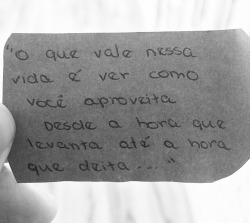 "O que vale nessa
vida é ver como
você aproveita
Desde a hora que
levanta até a hora
que deita..."